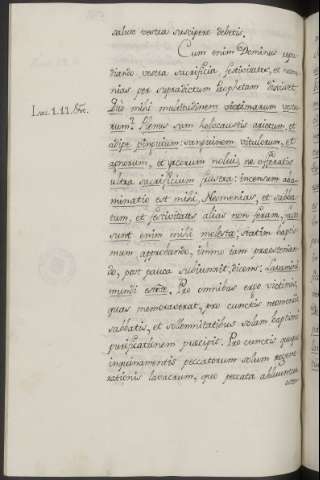 salute vestra suscipere debetis.
Cum enim Dominus repu-
diando vestra sacrificia festivitates, et neome-
nias per supradictum Prophetam dixisset
Isai. 1. 11. &c.
Quo mihi multitudinem victimarum vestra-
rum? Plenus sum holocaustis arietum, et
adipe pinguium: sanguinem vitulorum, et
agnorum, et hircorum nolui, ne offeratis
ultra sacrificium frustra: incensum abo-
minatio est mihi, Neomenias, et sabba-
tum, et festivitates alias non feram, facta
sunt enim mihi molesta; statim baptis-
mum approbando, immo iam praeostenden-
do, post pauca subiunxit, dicens: Lavamini
mundi estote. Pro omnibus ergo victimis,
quas memoraverat, pro cunctis neomeniis
sabbatis, et solemnitatibus solam baptismi
purificationem praecipit. Pro cunctis quoque
inquinamentis peccatorum solum regene-
rationis lavacrum, quo peccata abluuntur